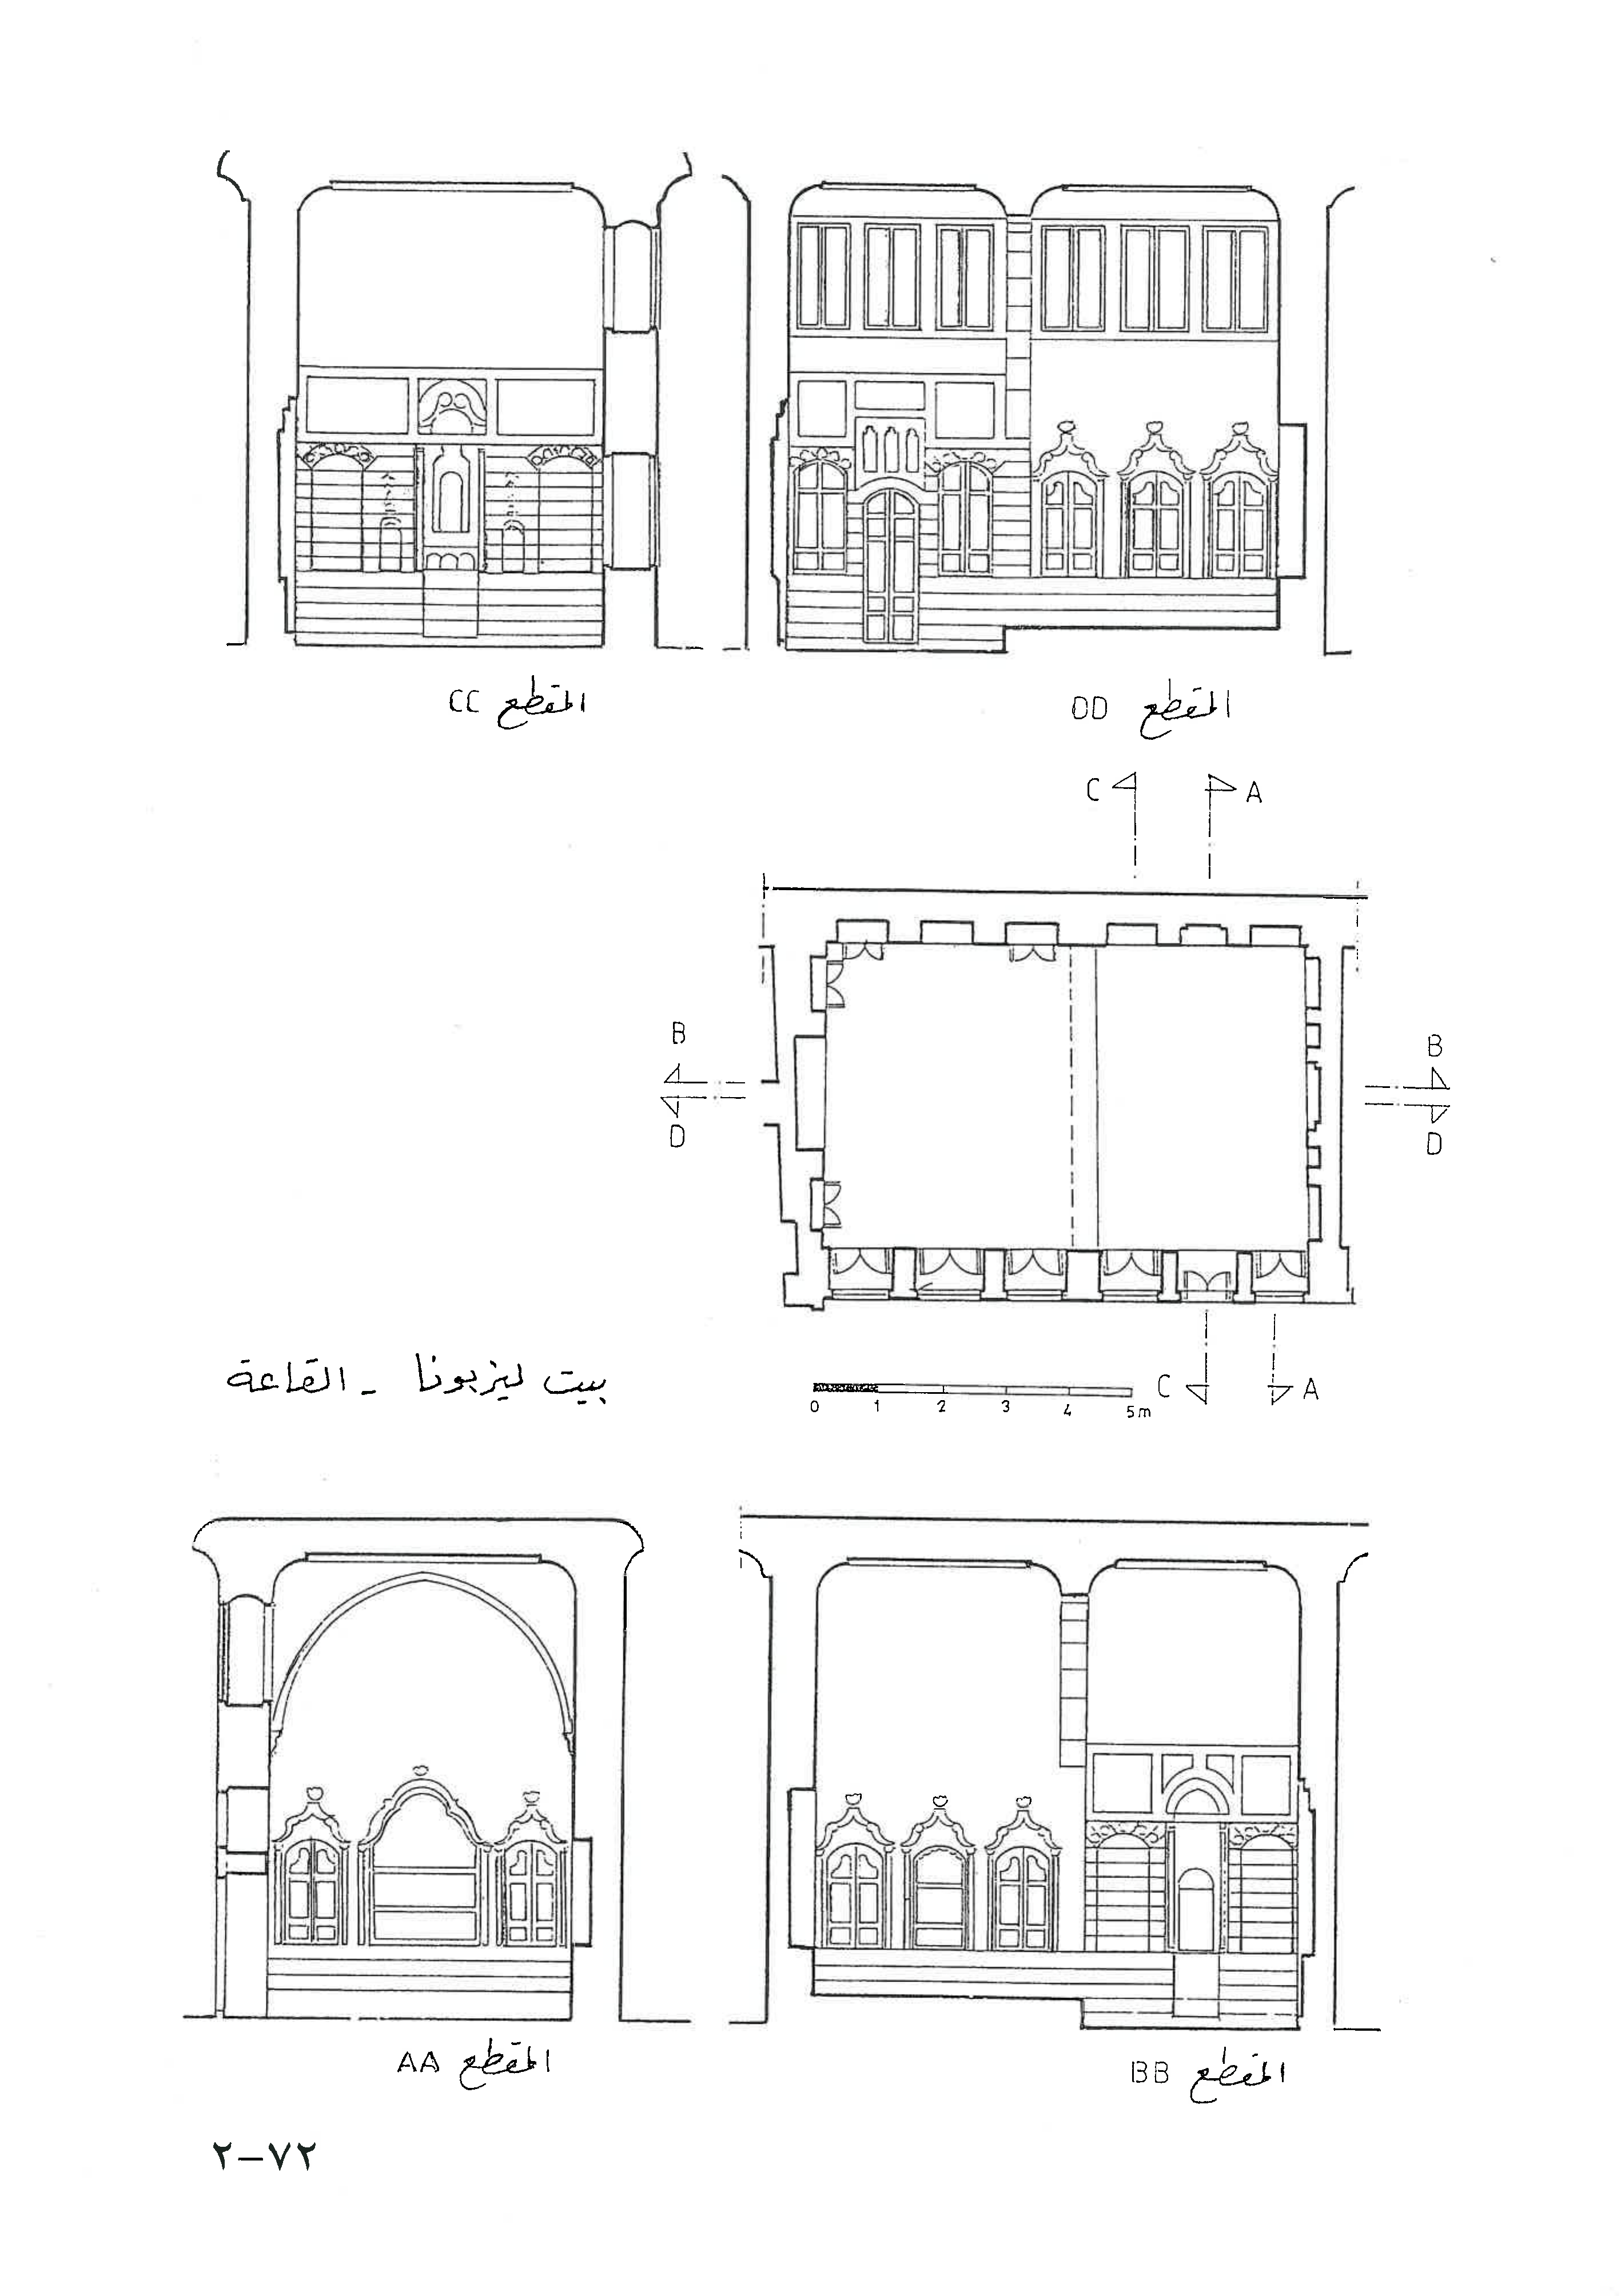 المقطع CC
المقطع DD
C A
B B
D D
C A
بيت ليزبونا - القاعة
0 1 2 3 4 5m
المقطع AA
المقطع BB
٢-٧٢